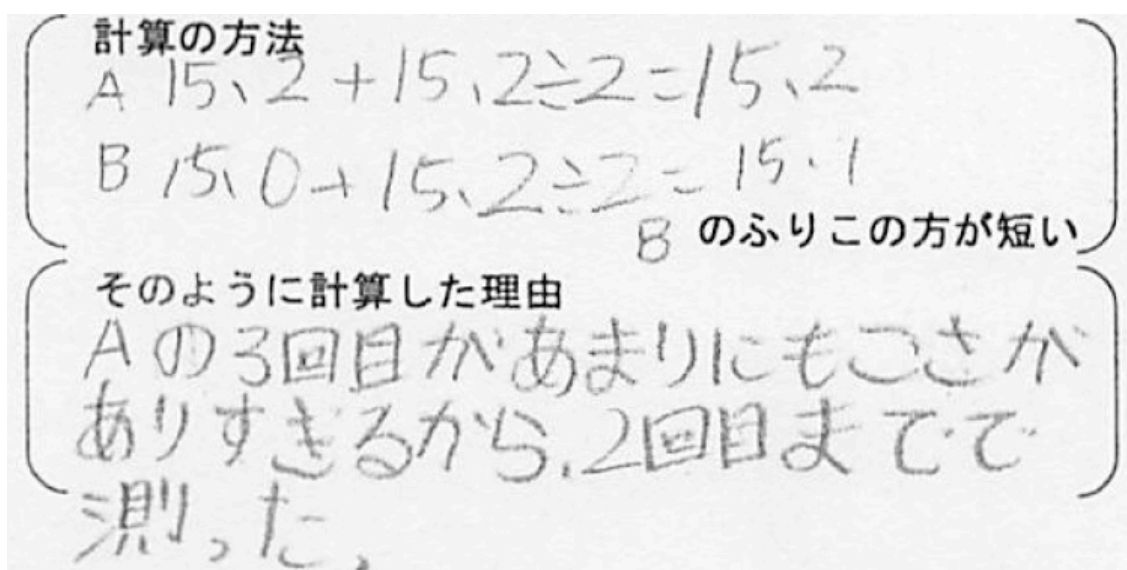 計算の方法
A 15、2+15、2÷2=15、2
B 15、0+15、2÷2=15、1
B のふりこの方が短い
そのように計算した理由
Aの3回目があまりにもごさが
ありすぎるから、2回目までで
測った。